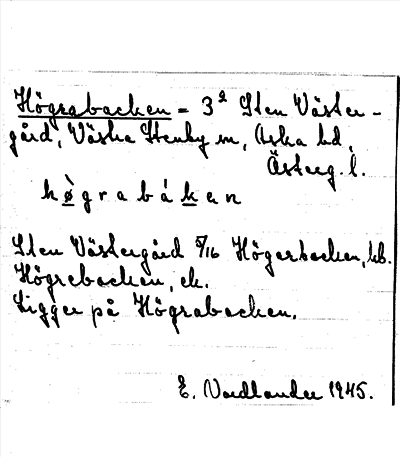 Högrabacken = 3² Sten Väster-
gård, Västra Stenby sn, Aska hd,
Österg. l.
hø̀grabákan
Sten Västergård 5/16 Högerbacken, kb.
Högrebacken, ek.
Ligger på Högrabacken.
E. Nordlander 1945.